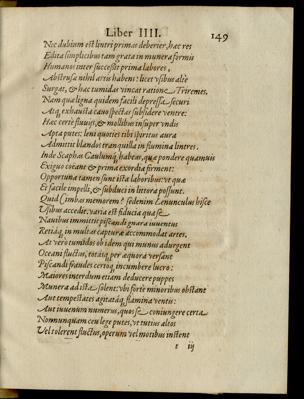 Liber IIII. 149
Nec dubium est lintri primas deberier, hac res
Edita simplicibus tam grata in munera formis
Humanos inter successit prima labores.
Abstrusa nihil artis habent: licet usibus altè
Surgat, & hac tumidas vincat ratione Triremes,
Nam qua ligna quidem facili depressa securi
Atq; exhausta cano spectas subsidere ventre:
Hac certè fluuijs, & mollibus insuper vndis
Apta putes: leni quoties tibi spiritus aura
Admittit blandos tranquilla in flumina lintres.
Inde Scaphas habeas, qua pondere quamuis
Exiguo oceano & prima exordia firment:
Opportuna tamen sunt ista laboribus: vt quæ
Et facile impelli, & subduci in littora possunt.
Quid memorem? sedenim Lenunculus hisce
Vsibus accedit: varia est fiducia quase
Nautibus immittit piscandi gnara iuuentus
Retiaq; in multas captura accommodat artes.
At vero tumidos obidem qui munus adurgent
Oceani fluctus, totaq; per æquora versant
Piscandi seandes certoq; incumbere lucro:
Maiores interdum etiam deducere puppes
Munera adista solent: vbi forte minoribus obstant
Aut tempestates agitataq; flamina ventis:
Aut iuuenum numerus, quos se coniungere certa
Nonnunquam ceu lege putes, vt tutius altos
Vel tolerent fluctus, operum vel motibus instent
t iij